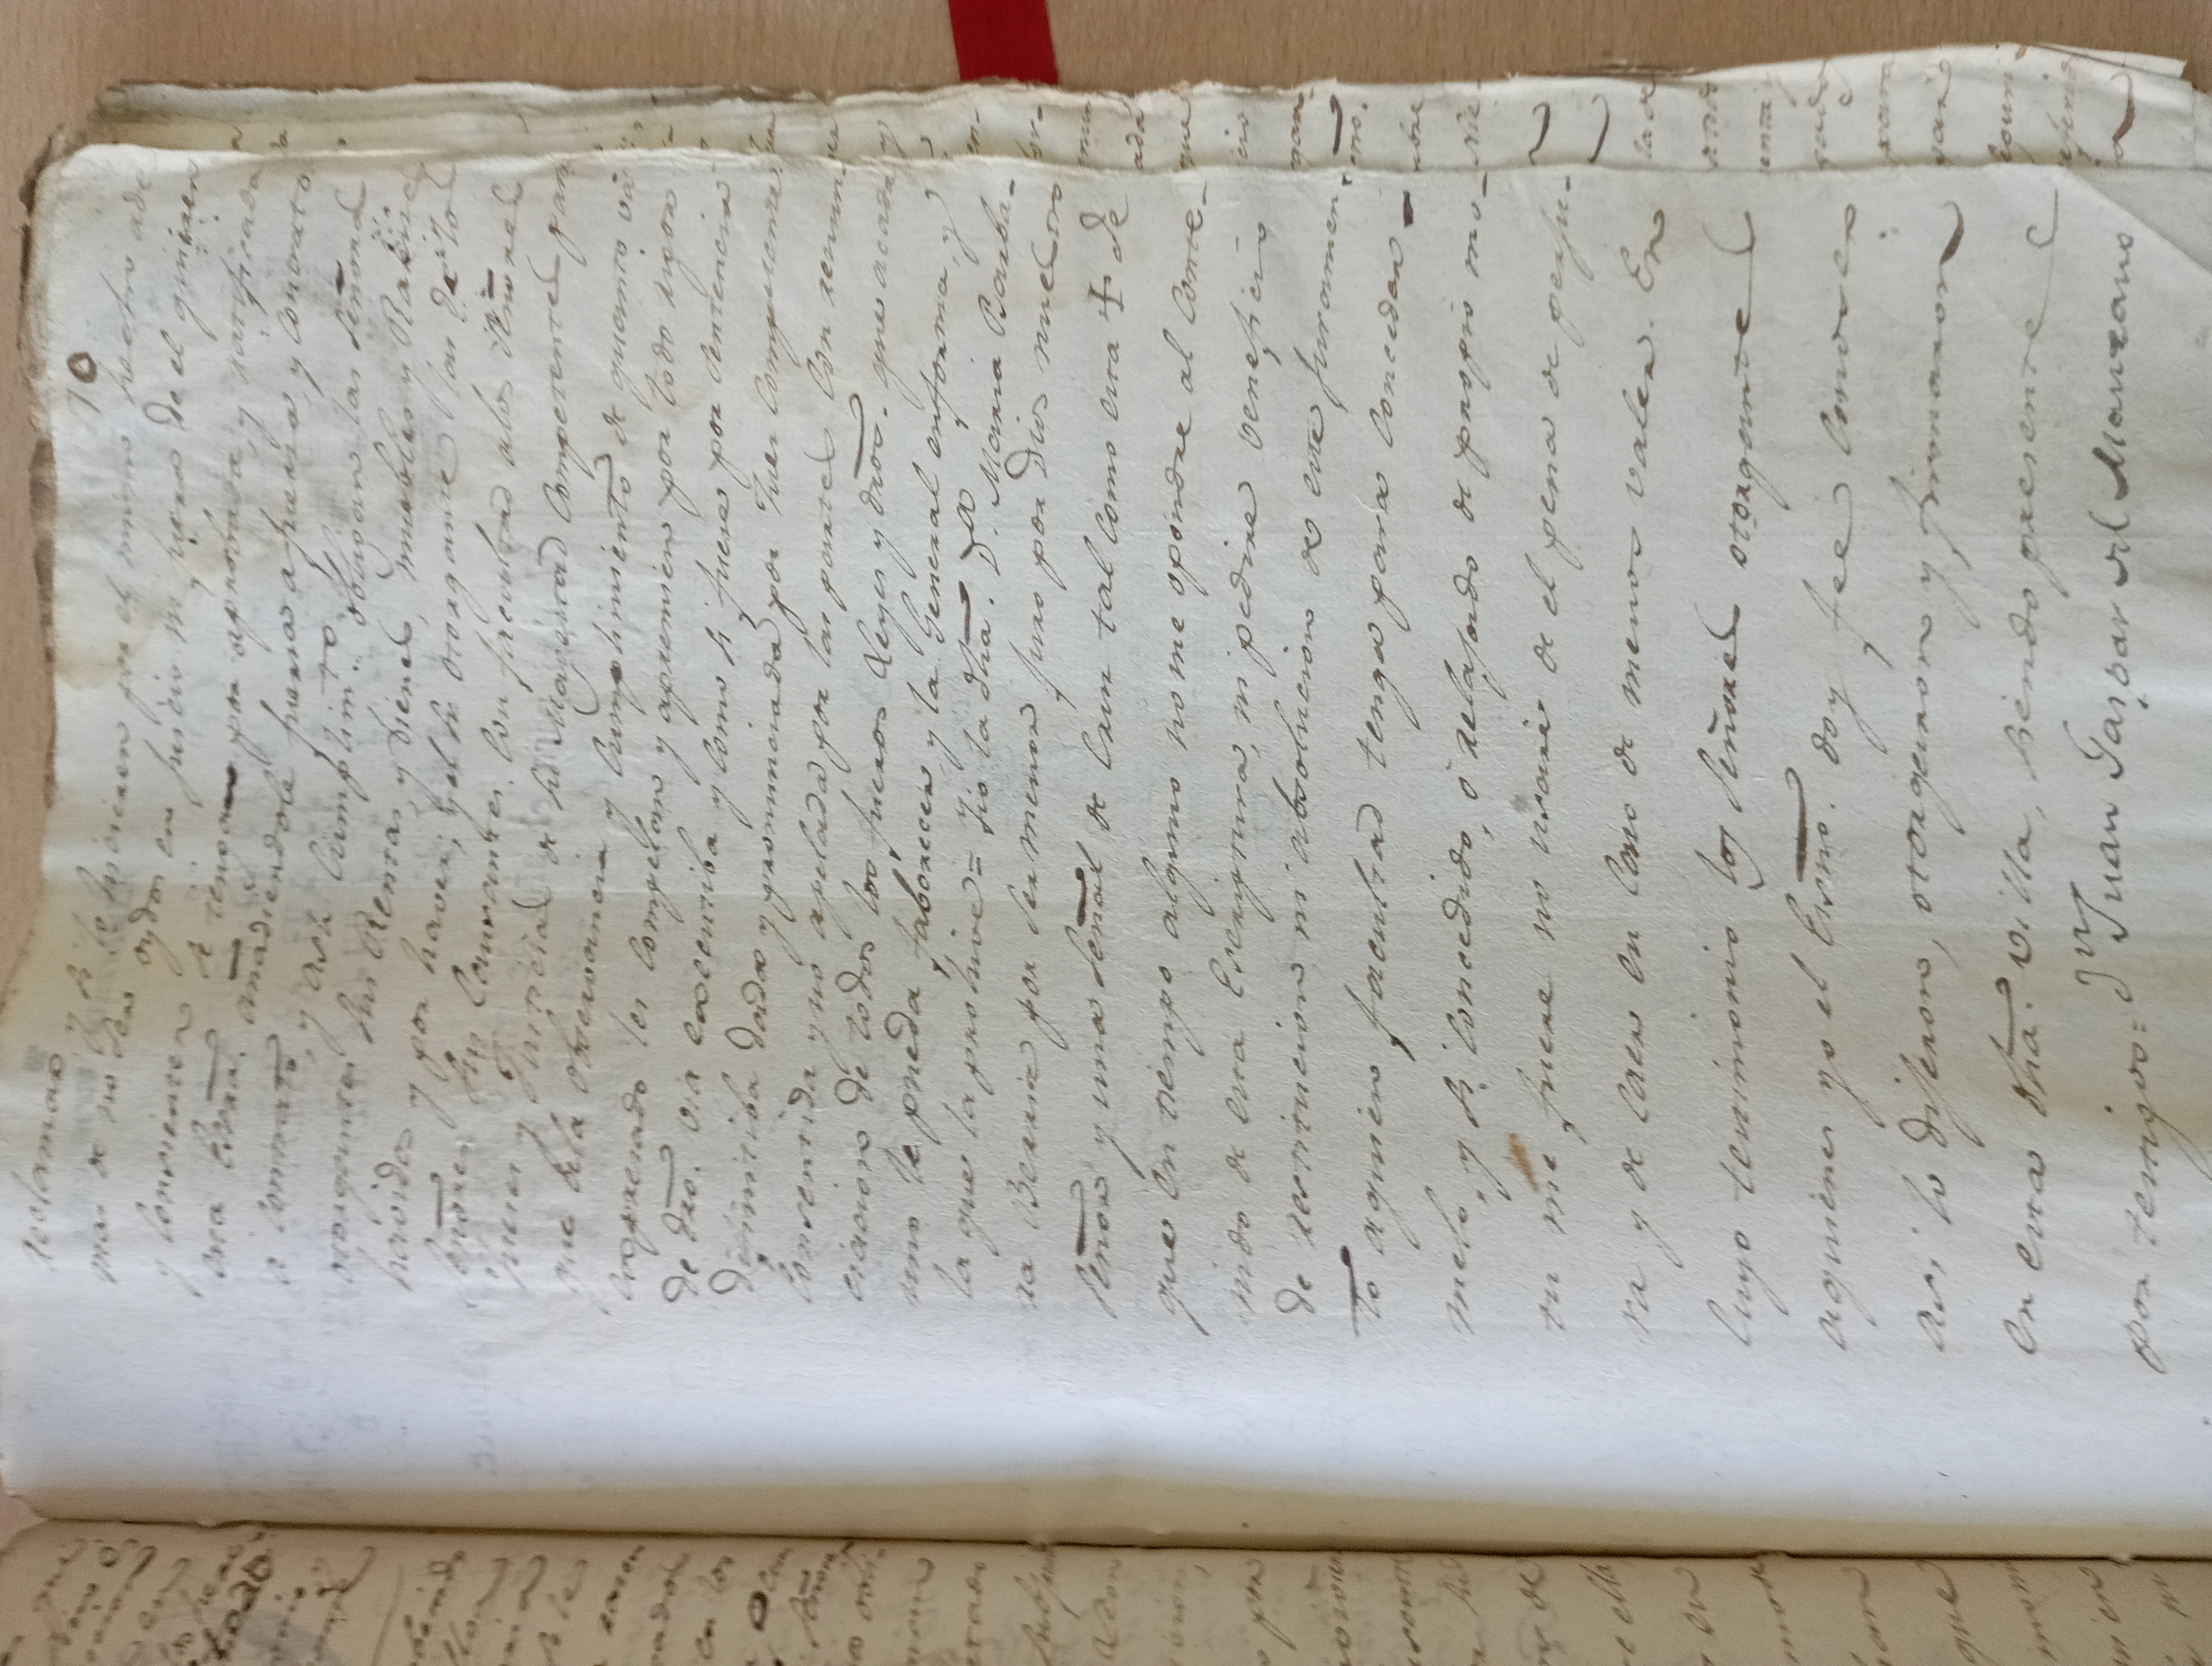 10
reclamar, y si lo hicieren por el mismo hecho ade
mas de no ser oydos en juicio ni fuera de el quieren
y consienten se tenga por aprobada, y ratificada
esta Essra. añadiendole fuerza a fuerza, y contrato
a contrato, y a su cumplimto. obligan las señoras
otorgantes sus Rentas, y vienes, muebles y Raices
havidos y por haver; y el sr. otorgante las de los
señores sus Causantes. Con facultad a los Señores
Jueces y Justicias de su Magestad Competentes para
que a la observancia y cumplimiento de quanto vá
expresado les compelan y apremien por todo rigor
de dro. via executiba y como si fuese por sentencia
difinitiba dada y pronunciada por Juez Competente
Consentida y no apelada por las partes con renun-
ciacion de todos los fueros Leyes y dros. que a cada
uno le pueda faborecer, y la General en forma, y
la que la prohive = Yo la dha. Da. Maria Barba-
ra Berriz por ser menor juro por Dios nuestro
señor y una señal de Cruz tal como esta + de
que en tiempo alguno no me opondre al Conte-
nido de esta Escriptura, ni pedire veneficio
de restitucion ni absolucion de este juramen-
to a quien facultad tenga para conceder-
melo, y si concedido, ó relajado de propio mo-
tu me fuere no usaré de el pena de perju-
ra y de caer en Caso de menos valer. En
Cuyo testimonio los Señores otorgantes
a quienes yo el Essno. doy fee conozco
asi lo dijeron, otorgaron y firmaron
en esta dha. villa, siendo presentes
por testigos = Dn Juan Gaspar del Manzano